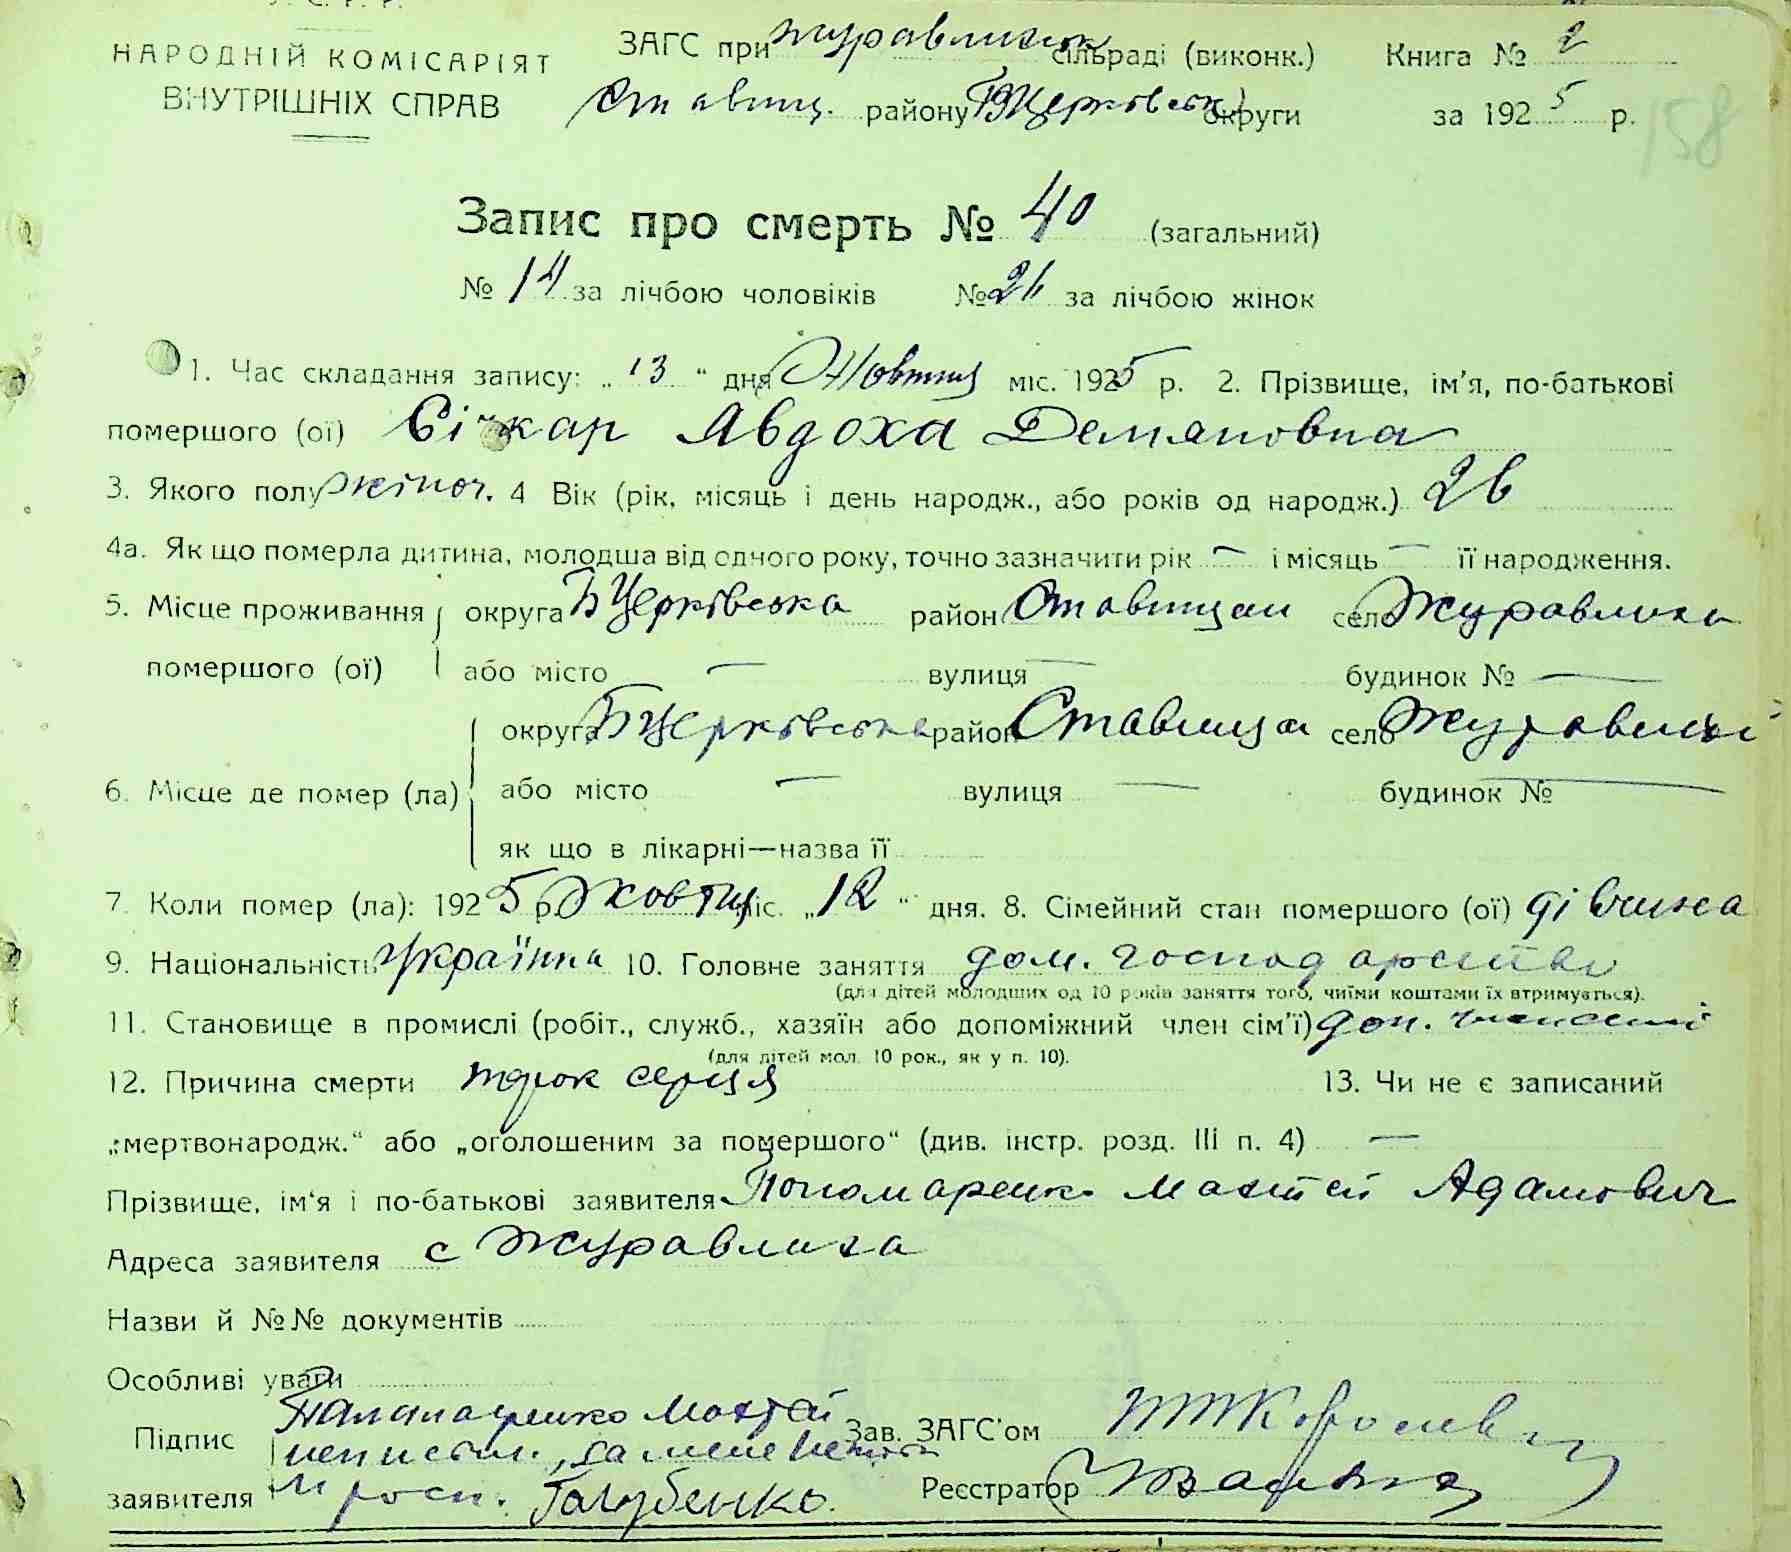 У. С. Р. Р.
НАРОДНІЙ КОМІСАРІЯТ
ВНУТРІШНІХ СПРАВ
ЗАГС при журавлиськ сільраді (виконк.) Книга № 2
Ставищ. району БЦерковськ округи за 1925 р.
158
Запис про смерть № 40 (загальний)
№ 14 за лічбою чоловіків № 26 за лічбою жінок
1. Час складання запису: „13“ дня Жовтня міс. 1925 р. 2. Прізвище, ім'я, по-батькові
помершого (ої) Січкар Явдоха Демяновна
3. Якого полу жіноч. 4 Вік (рік, місяць і день народж., або років од народж.) 26
4а. Як що померла дитина, молодша від одного року, точно зазначити рік — і місяць — її народження.
5. Місце проживання округа БЦерківська район Ставищан село Журавлиха
помершого (ої) або місто — вулиця — будинок № —
округа БЦерківська район Ставища село
6. Місце де помер (ла) або місто — вулиця — будинок № —
як що в лікарні—назва її
7. Коли помер (ла): 1925 р. Жовтня міс. „12“ дня. 8. Сімейний стан помершого (ої) дівчина
9. Національність Українка 10. Головне заняття дом. господарство
(для дітей молодших од 10 років заняття того, чиїми коштами їх втримується).
11. Становище в промислі (робіт., служб., хазяїн або допоміжний член сім'ї) доп.
(для дітей мол. 10 рок., як у п. 10).
12. Причина смерти порок серця 13. Чи не є записаний
„мертвонародж.“ або „оголошеним за помершого“ (див. інстр. розд. III п. 4) —
Прізвище, ім'я і по-батькові заявителя Пономаренко Махтей Адамович
Адреса заявителя с Журавлиха
Назви й №№ документів
Особливі уваги
Підпис Махтей Зав. ЗАГС'ом
неписьм., за мене
заявителя росп. Голубенко. Реєстратор